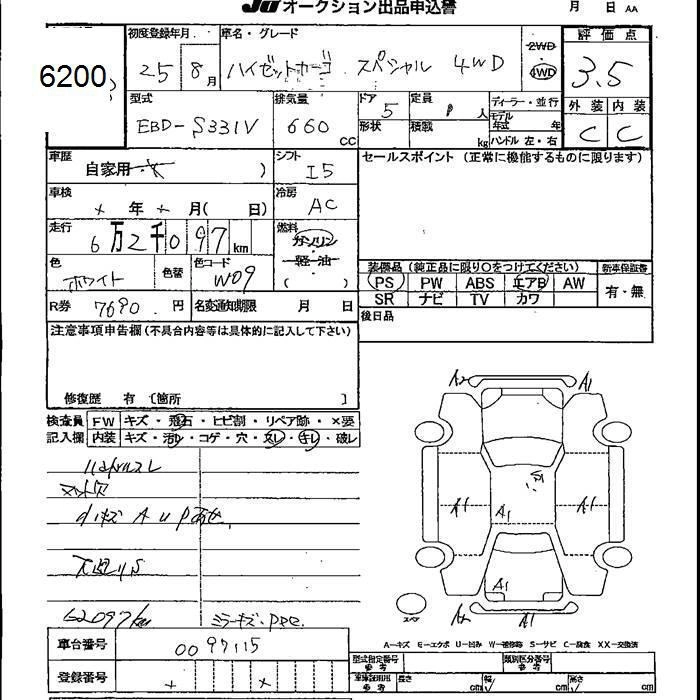 JU オークション出品申込書 月 日 AA
6200
初度登録年月 車名・グレード 2WD 評価点
25 8月 ハイゼットカーゴ スペシャル 4WD 4WD 3.5
型式 排気量 ドア 定員 ディーラー・並行 外装 内装
EBD-S331V 660 CC 5 人 モデル年式 年 C C
形状 積載 kg ハンドル 左・右
車歴 シフト セールスポイント (正常に機能するものに限ります)
自家用・ ) I5
車検 冷房
年 月( 日) AC
走行 燃料
6万2千097km ガソリン
軽・油
色 色替 色コード ( ) 装備品 (純正品に限り○をつけてください) 新車保証書
ホワイト W09 PS PW ABS エアB AW 有・無
R券 7690円 名変通知期限 月 日 SR ナビ TV カワ
後日品
注意事項申告欄(不具合内容等は具体的に記入して下さい)
修復歴 有 〔箇所 〕
検査員 FW キズ・飛石・ヒビ割・リペア跡・×要
記入欄 内装 キズ・汚レ・コゲ・穴・欠レ・キレ・破レ
A2 A1
A1 A1 A1
A1
A2 A1
スペア
62097km
A-キズ E-エクボ U-凹み W-補修跡 S-サビ C-腐食 XX-交換済
車台番号 0097115
型式指定番号 参考 類別区分番号 参考
登録番号
長さ 幅 高さ